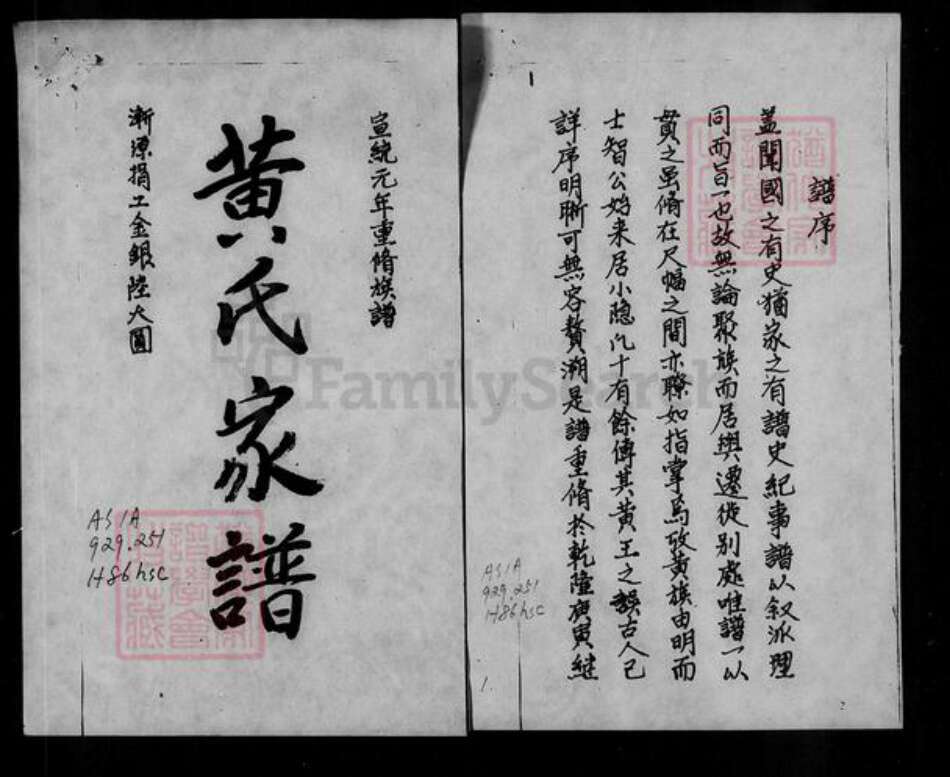 宣統元年重脩族譜
黃氏家譜
漸源捐工金銀陸大圓
ASIA
929.251
H86hsc
譜序
蓋聞國之有史猶家之有譜史紀事譜以叙派理
同而旨一也故無論聚族而居與遷徙別處唯譜一以
貫之虽脩在尺幅之間亦瞭如指掌焉攷黃族由明而
士智公始来居小隐凢十有餘傳其黃王之誤古人已
詳序明晣可無容贅溯是譜重脩於乾隆庚寅継
ASIA
929.251
H86hsc
1.
FamilySearch